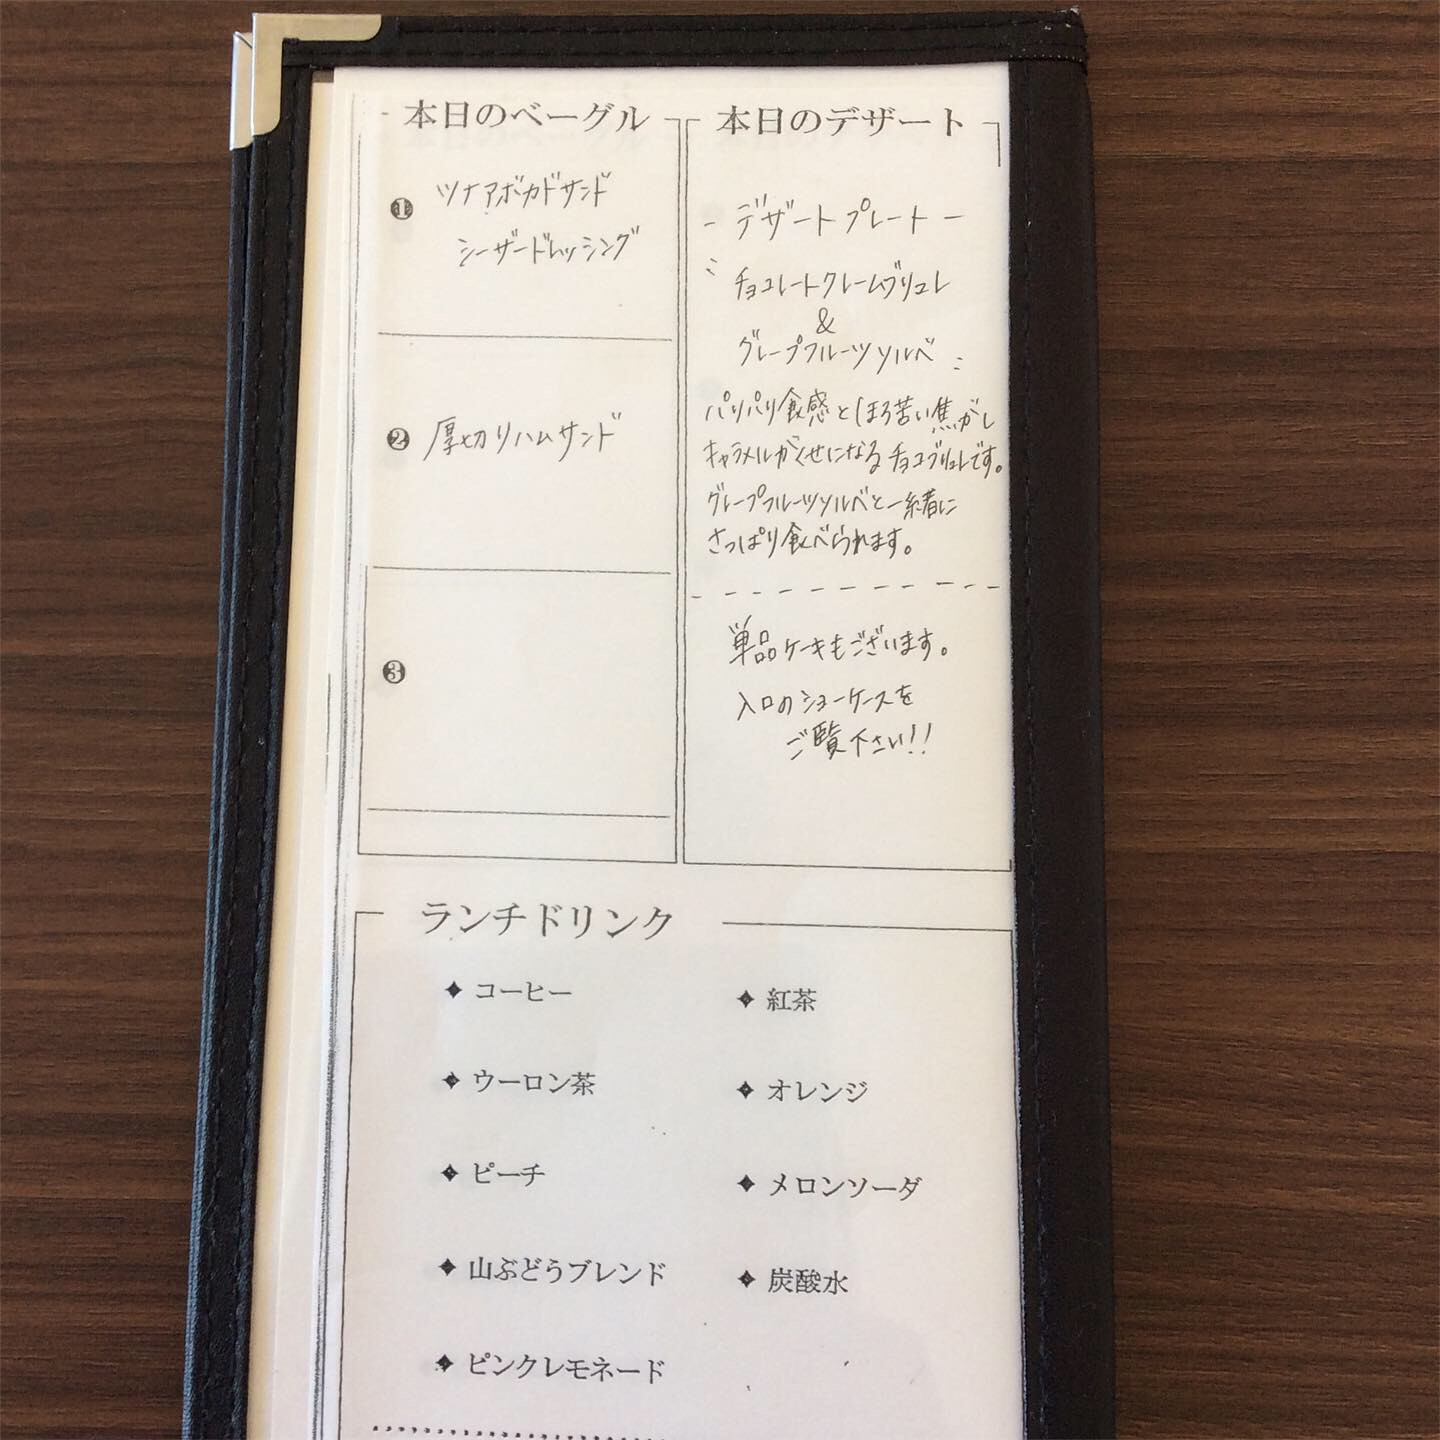 本日のベーグル
❶ ツナアボカドサンド
シーザードレッシング
❷ 厚切りハムサンド
❸
本日のデザート
- デザートプレート -
チョコレートクレームブリュレ
&
グレープフルーツソルベ
パリパリ食感とほろ苦い焦がし
キャラメルがくせになるチョコブリュレです。
グレープフルーツソルベと一緒に
さっぱり食べられます。
単品ケーキもございます。
入口のショーケースを
ご覧下さい!!
ランチドリンク
✦ コーヒー
✦ 紅茶
✦ ウーロン茶
✦ オレンジ
✦ ピーチ
✦ メロンソーダ
✦ 山ぶどうブレンド
✦ 炭酸水
✦ ピンクレモネード